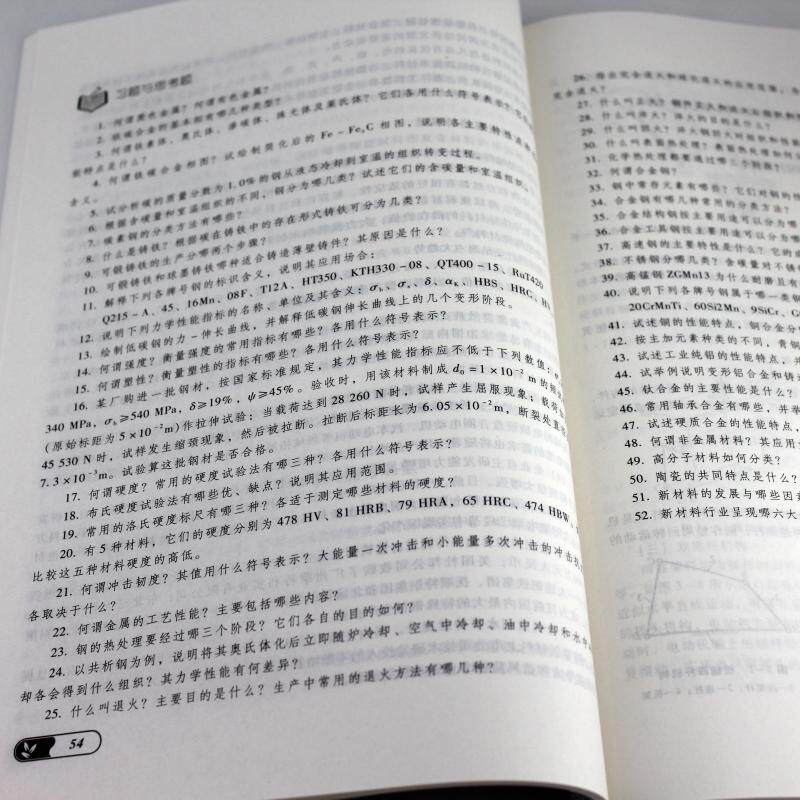 习题与思考题
1. 何谓黑色金属？何谓有色金属？
2. 铁碳合金的基本组织有哪几种类型？它们各用什么符号表示？
3. 何谓铁素体、奥氏体、渗碳体、珠光体及莱氏体？
能特点是什么？
4. 何谓铁碳合金相图？试绘制简化后的 Fe－Fe3C 相图，说明各主要特性点
含义。
5. 试分析碳的质量分数为 1.0%的钢从液态冷却到室温的组织转变过程。
6. 根据含碳量和室温组织的不同，钢分为哪几类？试述它们的含碳量和室温组织。
7. 碳素钢的分类方法有哪些？
8. 什么是铸铁？根据碳在铸铁中的存在形式铸铁可分为几类？
9. 可锻铸铁的生产分哪两个步骤？
10. 可锻铸铁和球墨铸铁哪种适合铸造薄壁铸件？其原因是什么？
11. 解释下列各牌号钢的标识含义，说明其应用场合：
Q215－A、45、16Mn、08F、T12A、HT350、KTH330－08、QT400－15、RuT420
12. 说明下列力学性能指标的名称、单位及其含义：σ、σ、δ、αK、HBS、HRC、H
13. 绘制低碳钢的力－伸长曲线，并解释低碳钢伸长曲线上的几个变形阶段。
14. 何谓强度？衡量强度的常用指标有哪些？各用什么符号表示？
15. 何谓塑性？衡量塑性的指标有哪些？各用什么符号表示？
16. 某厂购进一批钢材，按国家标准规定，其力学性能指标应不低于下列数值：
340 MPa，σb≥540 MPa，δ≥19%，ψ≥45%。验收时，用该材料制成 d0＝1×10−2 m 的
(原始标距为 5×10−2m)作拉伸试验：当载荷达到 28 260 N 时，试样产生屈服现象；载荷
45 530 N 时，试样发生缩颈现象，然后被拉断。拉断后标距长为 6.05×10−2m，断裂处直
7.3×10−3m。试验算这批钢材是否合格。
17. 何谓硬度？常用的硬度试验法有哪三种？各用什么符号表示？
18. 布氏硬度试验法有哪些优、缺点？说明其应用范围。
19. 常用的洛氏硬度标尺有哪三种？各适于测定哪些材料的硬度？
20. 有 5 种材料，它们的硬度分别为 478 HV、81 HRB、79 HRA，65 HRC、474 HBW，
比较这五种材料硬度的高低。
21. 何谓冲击韧度？其值用什么符号表示？大能量一次冲击和小能量多次冲击的冲击抗
各取决于什么？
22. 何谓金属的工艺性能？主要包括哪些内容？
23. 钢的热处理要经过哪三个阶段？它们各自的目的如何？
24. 以共析钢为例，说明将其奥氏体化后立即随炉冷却、空气中冷却、油中冷却和水中
却各会得到什么组织？其力学性能有何差异？
25. 什么叫退火？主要目的是什么？生产中常用的退火方法有哪几种？
54
26. 指出完全退火和球化退火的应用范围，
完全退火？
27. 什么叫正火？
28. 什么叫淬火？淬火的目的是什么？
29. 什么叫回火？淬火钢回火
30. 什么叫表面热处理？表面热处理
31. 化学热处理都要通过哪三个阶段？
32. 何谓合金钢？
33. 钢中常存元素有哪些？它们对钢的性
34. 合金钢有哪几种常用的分类方法？
35. 合金结构钢按主要用途可以分为哪
36. 合金工具钢按主要用途可以分为哪
37. 高速钢的主要特性是什么？它的成
38. 不锈钢分哪几类？含碳量对不锈
39. 高锰钢 ZGMn13 为什么耐磨且有
40. 说明下列各牌号钢属于哪一类钢
20CrMnTi、60Si2Mn、9SiCr、G
41. 试述铜的性能特点，铜合金分
42. 按主加元素种类的不同，青铜
43. 试述工业纯铝的性能特点，并
44. 试举例说明变形铝合金和铸造
45. 钛合金的主要性能是什么？
46. 常用轴承合金有哪些，并举
47. 试述硬质合金的性能特点，
48. 何谓非金属材料？其应用
49. 高分子材料如何分类？
50. 陶瓷的共同特点是什么？
51. 新材料的发展与哪些因素
52. 新材料行业呈现哪六大